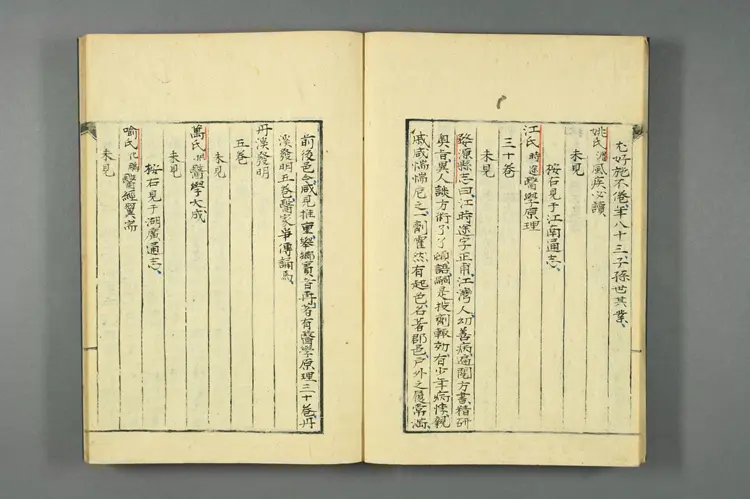 尤好施不倦年八十三子孫世其業
姚氏濬風疾必讀
未見
按右見于江南通志
江氏時途醫學原理
三十卷
未見
婺源縣志曰江時途字正甫江灣人幼善病遍閱方書精研
奧旨異人談方術了了嗣是按劑輒効有少年病悸親
戚咸惴惴危之一劑霍然有起色名著郡邑戶外之屨常滿
前後邑令咸見推重舉鄉賓者再著有醫學原理三十卷丹
溪發明五卷醫家爭傳誦焉
丹溪發明
五卷
未見
萬氏拱醫學大成
未見
按右見于湖廣通志
喻氏化鵬醫經翼
未見